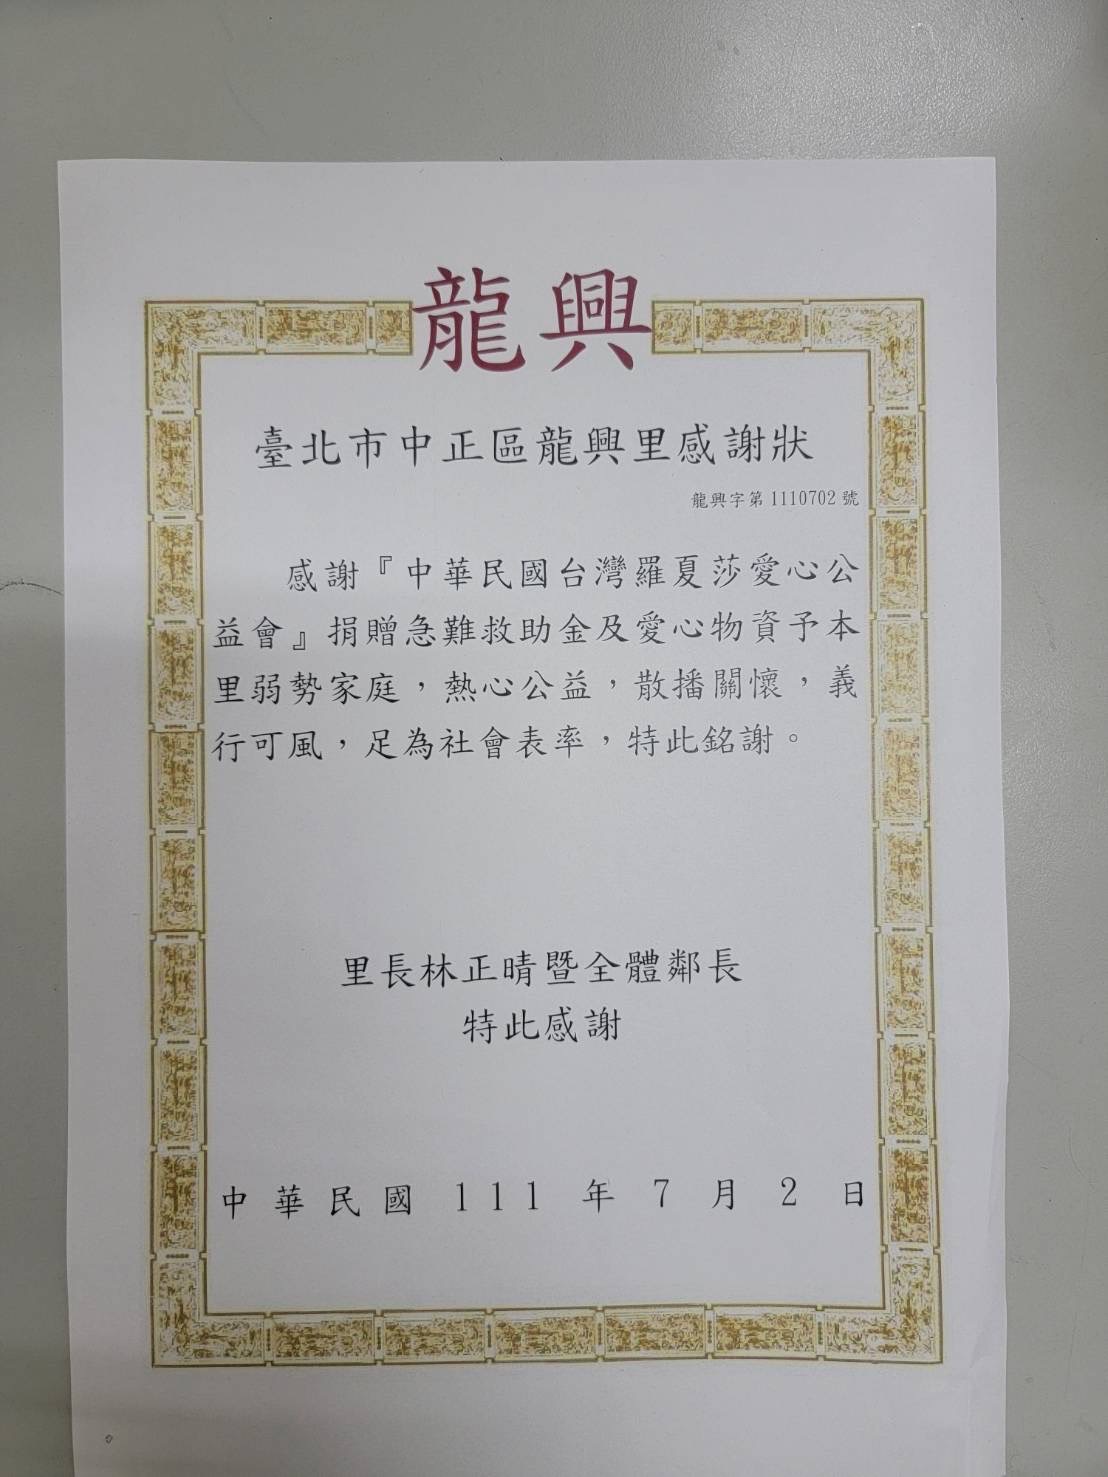 龍興
臺北市中正區龍興里感謝狀
龍興字第1110702號
感謝『中華民國台灣羅夏莎愛心公
益會』捐贈急難救助金及愛心物資予本
里弱勢家庭，熱心公益，散播關懷，義
行可風，足為社會表率，特此銘謝。
里長林正晴暨全體鄰長
特此感謝
中華民國 111 年 7 月 2 日